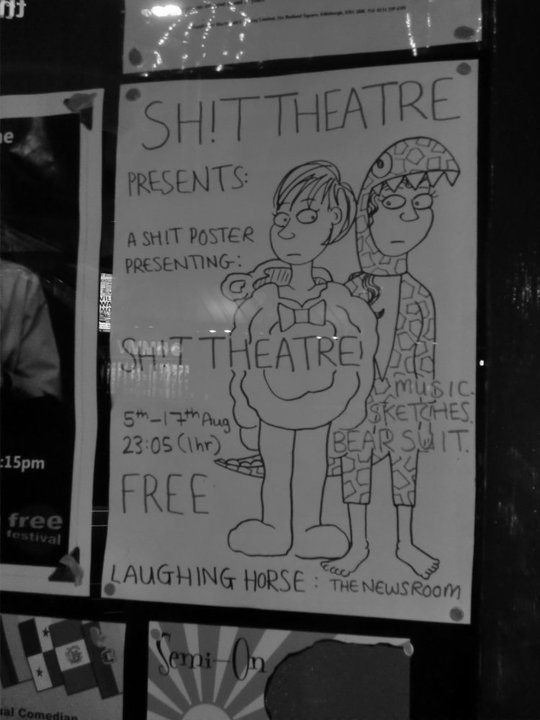 SH!T THEATRE
PRESENTS:
A SHIT POSTER
PRESENTING:
SH!T THEATRE
MUSIC.
SKETCHES.
BEAR SUIT.
5th-17th Aug
23:05 (1hr)
FREE
LAUGHING HORSE : THE NEWSROOM
:15pm
free
festival
Semi-On
ual Comedian